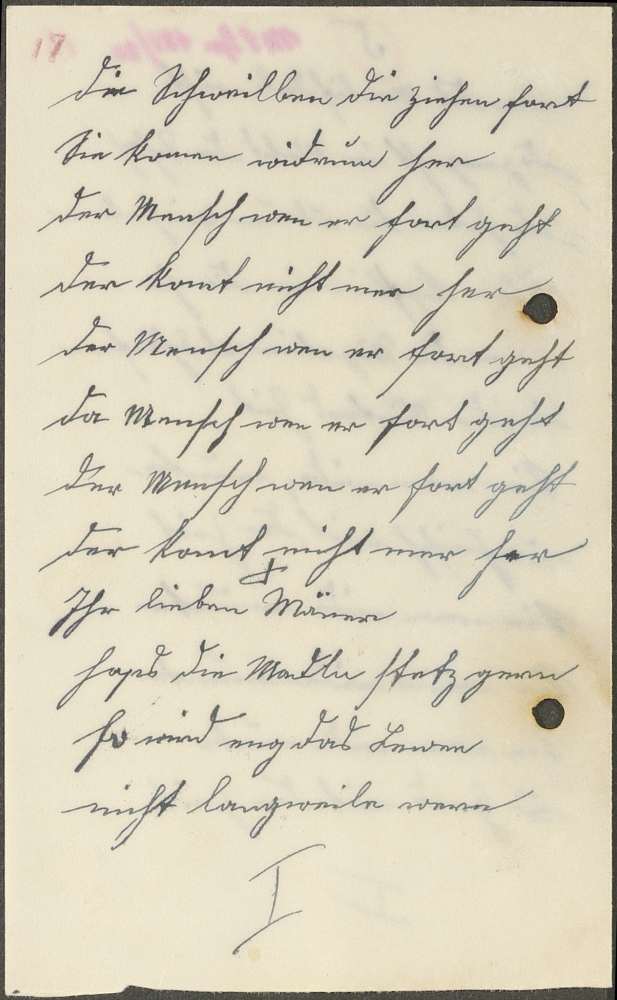 17
die Schweilben die ziehen fort
Sie komen widrum her
der Mensch wen er fort geht
der komt nicht mer her
der Mensch wen er fort geht
da Mensch wen er fort geht
der Mensch wen er fort geht
der komt nicht mer her
Ihr lieben Mäner
habs die Madln stetz gern
so wird eng das Lewen
nicht langweile wern
I